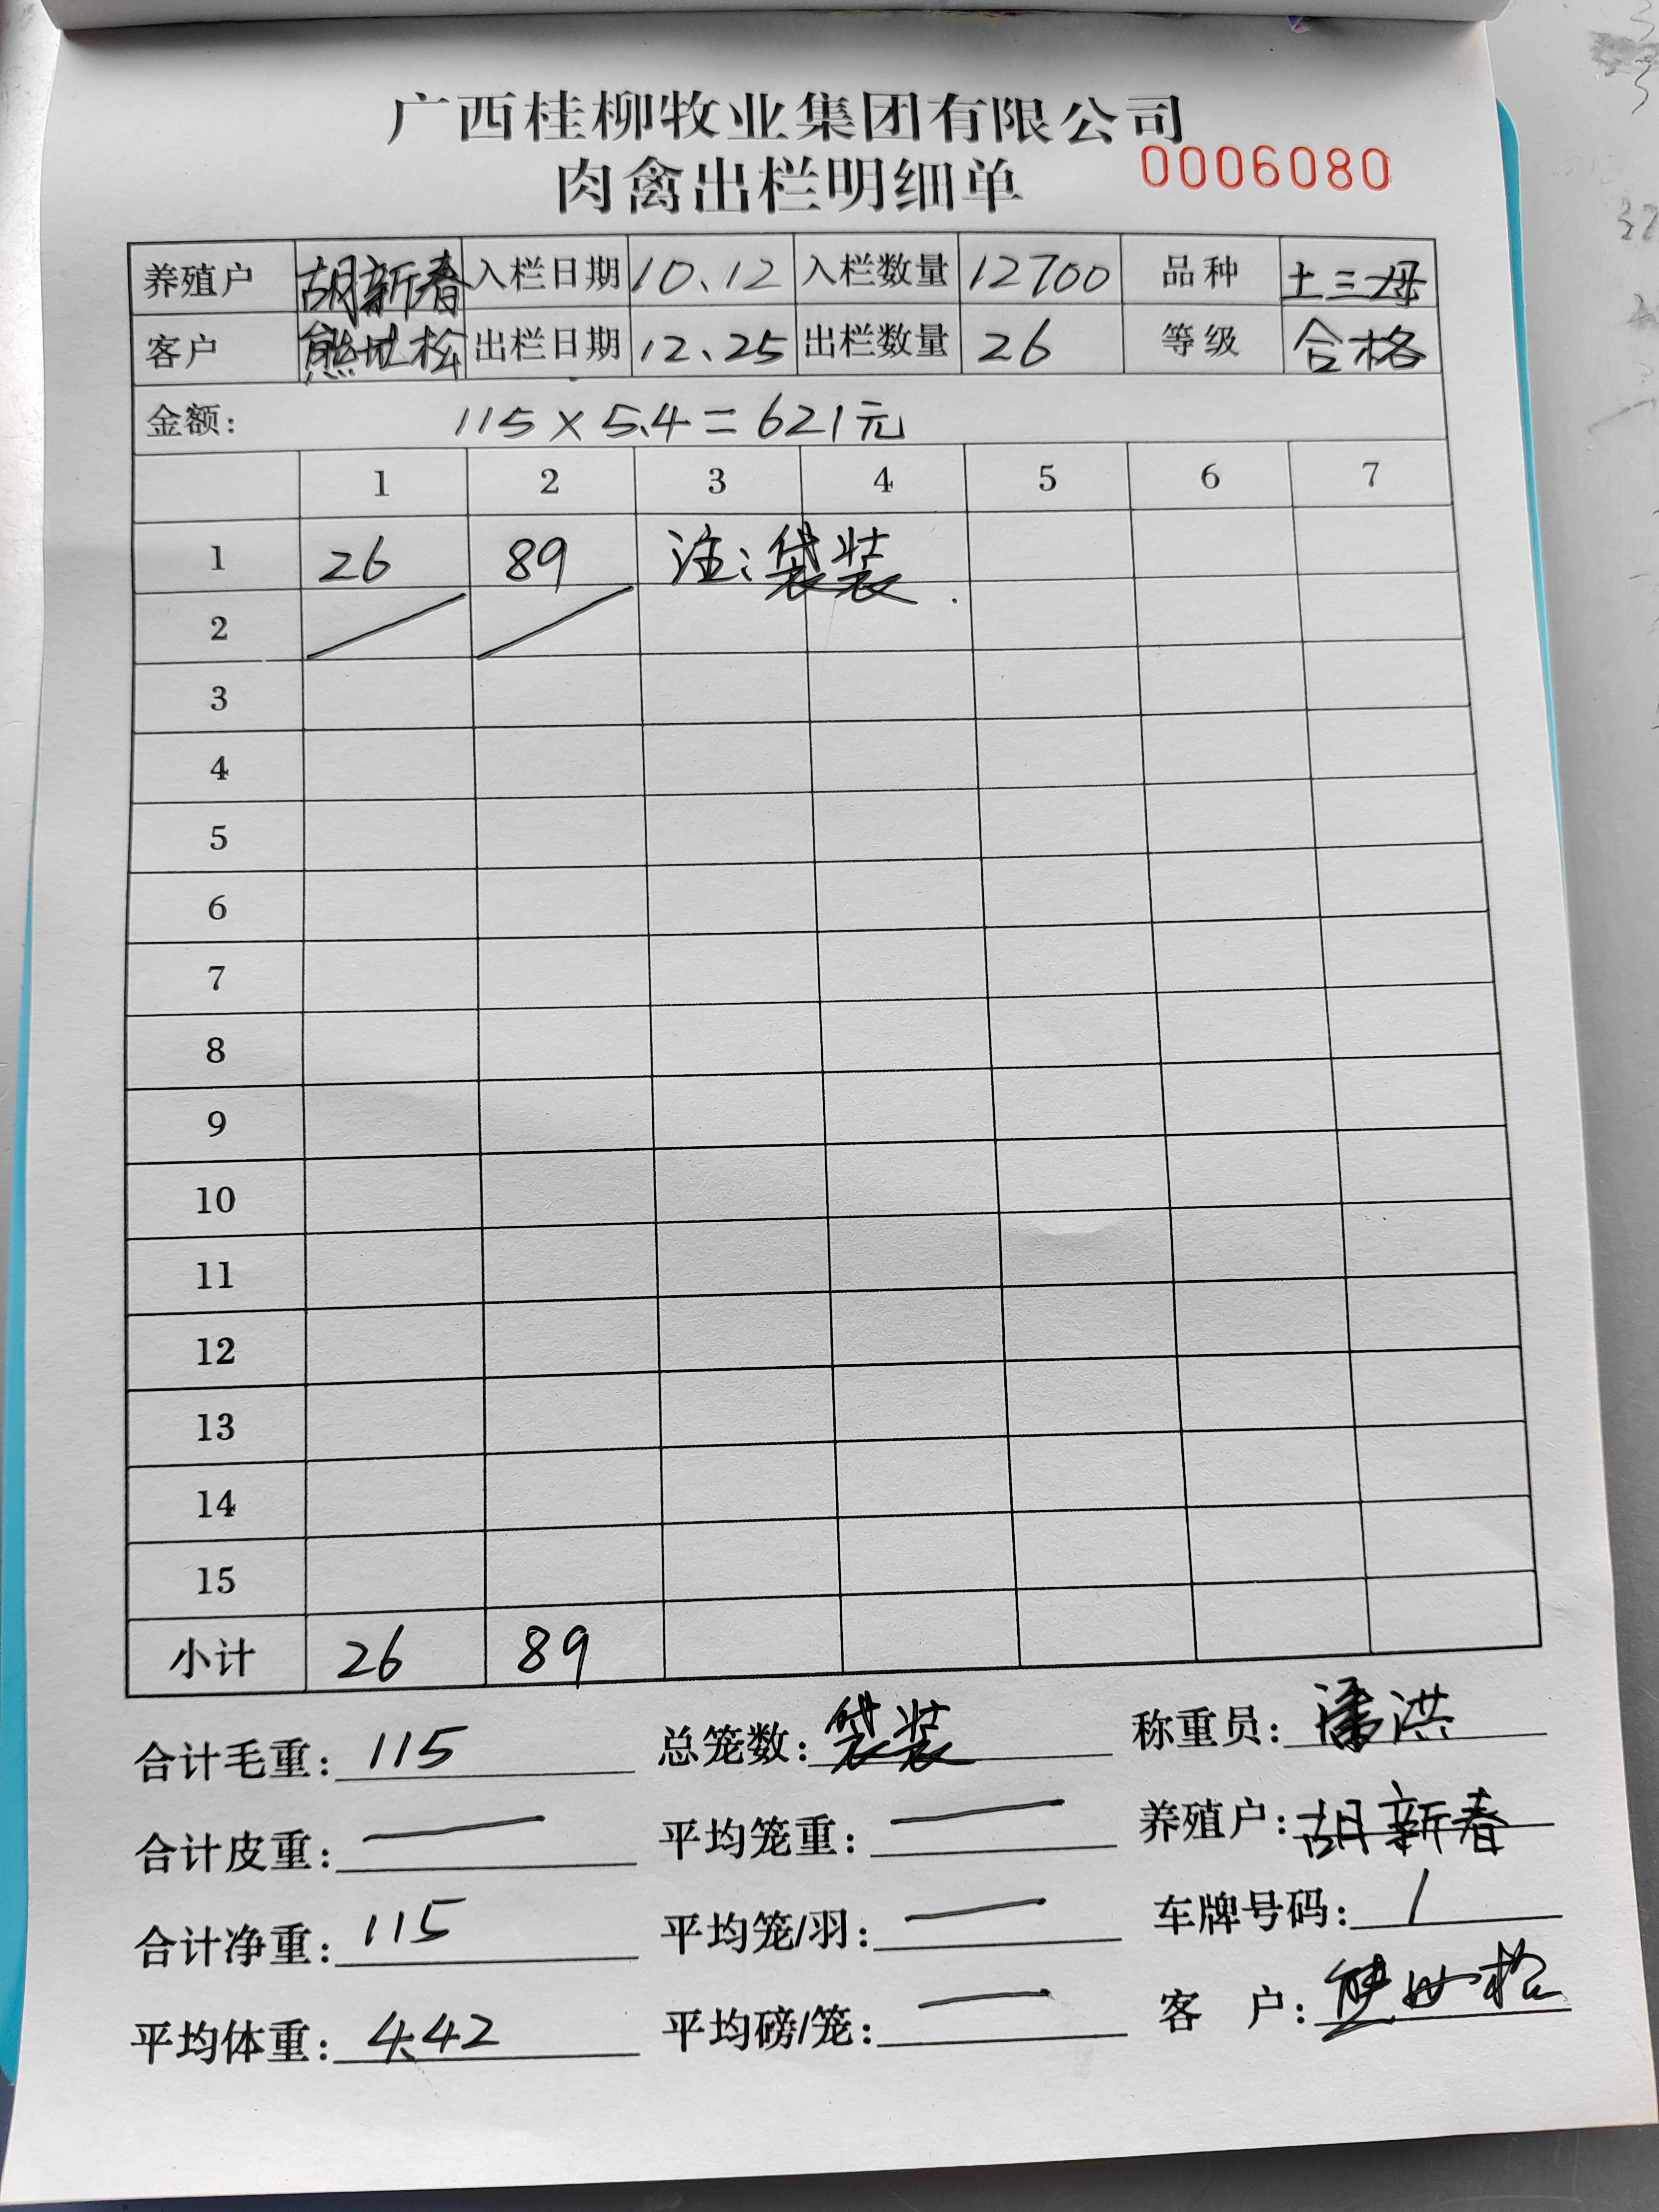 广西桂柳牧业集团有限公司
肉禽出栏明细单 0006080
养殖户 胡新春 入栏日期 10.12 入栏数量 12700 品种 土三母
客户 熊世松 出栏日期 12.25 出栏数量 26 等级 合格
金额: 115×5.4=621元
1 2 3 4 5 6 7
1 26 89 注:袋装
2
3
4
5
6
7
8
9
10
11
12
13
14
15
小计 26 89
合计毛重: 115 总笼数: 袋装 称重员: 潘洪
合计皮重: 平均笼重: 养殖户: 胡新春
合计净重: 115 平均笼/羽: 车牌号码: /
平均体重: 4.42 平均磅/笼: 客 户: 熊世松